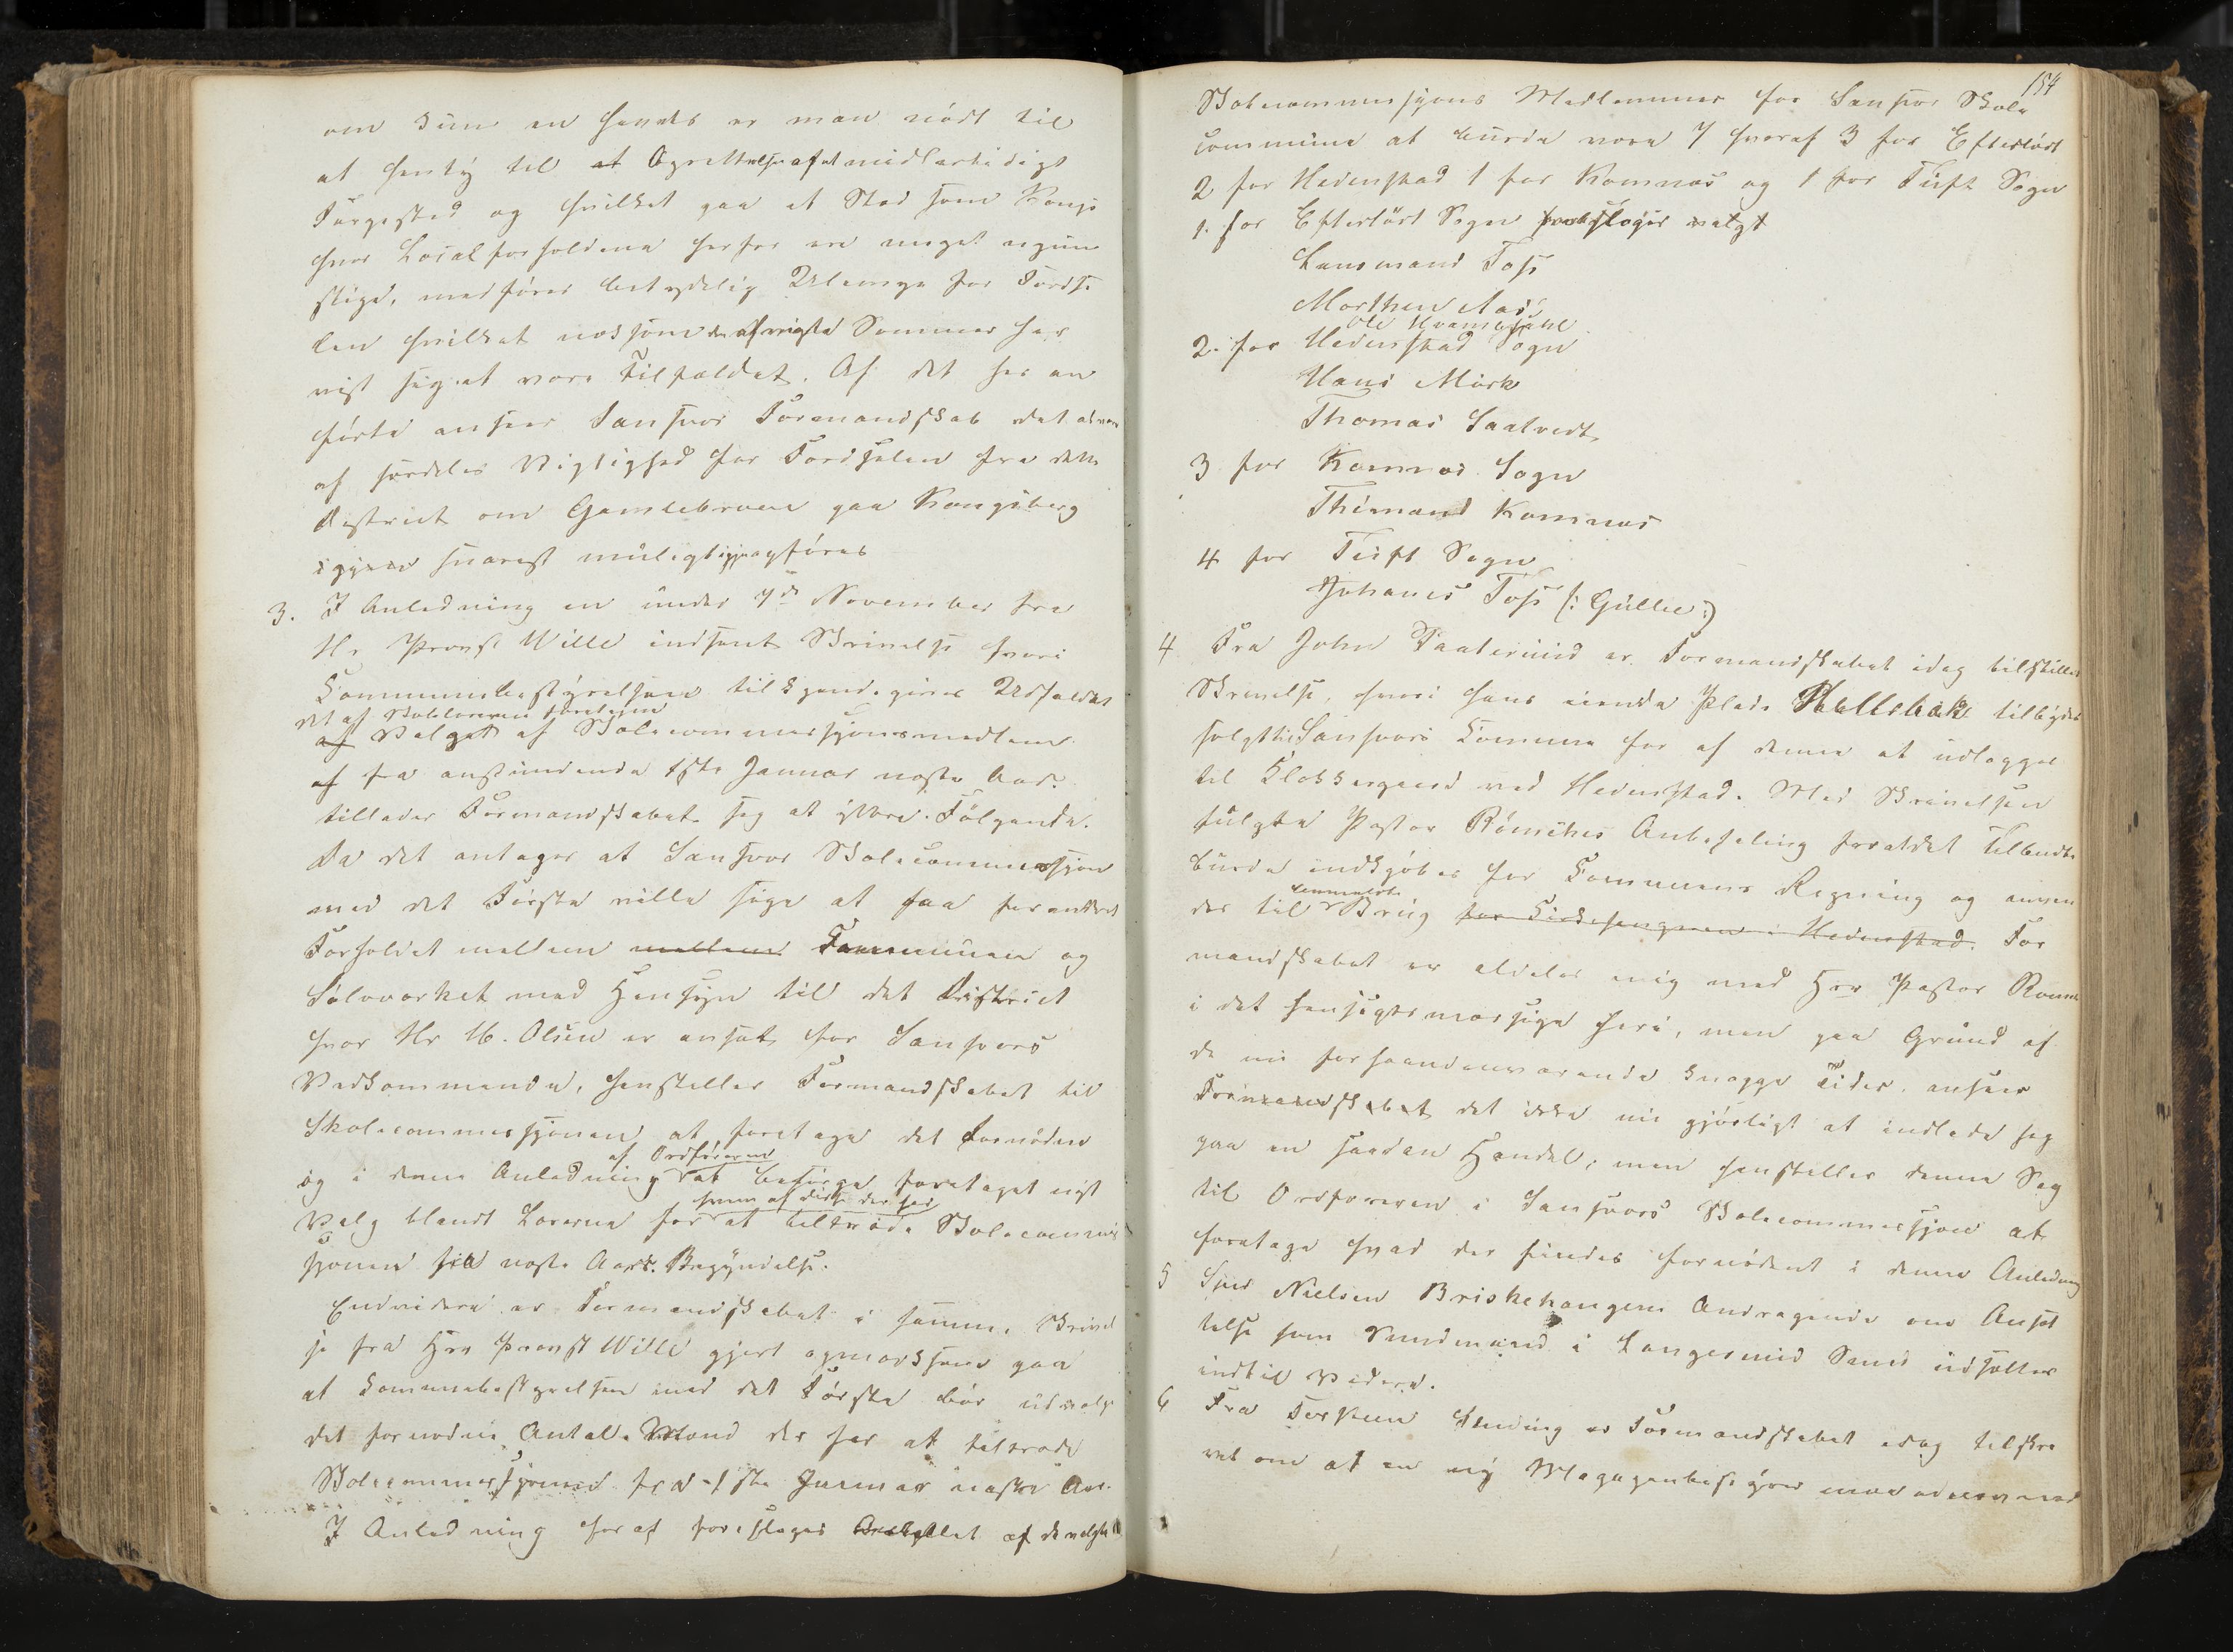 om den en hendes er man nödt til
at henty til at Oprettelse af et midlertidigt
Færgested og hvilket paa et Sted som Kongs
hvor Localforholdene herfor ere meget ugun
stige, medfører betydelig Ulempe for Færdse
len hvilket noksom den afvigte Sommer har
vist sig at være Tilfældet. Af det her an
førte anseer Sandsvær Formandskab det at være
af særdeles Vigtighed for Færdselen fra dette
District om Gamlebroen paa Kongsberg
igjen snarest muligt opføres
3. I Anledning en under 7de November fra
Hr Provst Wille indsent Skrivelse hvori
Kommunebestyrelsen tilkjendegives Udfaldet
det af Skolelærerne foretagne
af Valget af Skolecommissjonsmedlem
af fra anstundende 1ste Januar næste Aar.
tillader Formandskabet sig at ittre Følgende.
Da det antages at Sandsvær Skolecommissjon
med det Første ville søge at faa forandret
Forholdet mellem mellem Kommunen og
Sølvværket med Hensyn til det District
hvor Hr M. Olsen er ansat for Sandsværs
Vedkommende, henstiller Formandskabet til
Skolecommissjonen at foretage det fornödne
af Ordføreren
og i denne Anledning at besörge foretaget nyt
hvem af disse der har
Valg blandt Lærerne for at tiltræde Skolecommis
sjonen fra næste Aars Begyndelse.
Endvidere er Formandskabet i samme Skrivel
se fra Hrr Provst Wille gjort opmærksom paa
at Kommunebestyrelsen med det Første bör udvælge
det fornødne Antal Mænd der har at tiltræde
Skolecommissjonen fra 1ste Januar næste Aar.
I Anledning heraf foreslages Antallet af de valgte
154
Skolecommissjons Medlemmer for Sandsvær Skole
commune at burde være 7 hvoraf 3 for Efteløst
2 for Hedenstad 1 for Komnæs og 1 for Tuft Sogn
1. for Efteløst Sogn valgt
Lensmand Foss
Morthen Aas
Ole Hvamsdahl
2. for Hedenstad Sogn
Hans Mörk
Thomas Saatvedt
3 for Komnæs Sogn
Thimand Komnæs
4 for Tuft Sogn
Johanes Foss (: Gullie :)
4 Fra John Taaterniid er Formandskabet idag tilstillet
Skrivelse, hvori hans eiende Plads Kællebæk tilbydes
solgt til Sandsvers Komune for af denne at udlægges
til Klokkergaard ved Hedenstad. Med Skrivelsen
fulgte Pastor Rönnikes Anbefaling for at det Tilbudte
burde indkjöbes for Kommunens Regning og anven
bemeldte
des til Brug for Kirkesangeren i Hedenstad. For
mandskabet er aldeles enig med Hrr Pastor Rönnike
i det hensigtsmæssige heri, men paa Grund af
de nu forhaandenværende knappe Tider anseer
Formandskabet det ikke nu gjørligt at indlade sig
paa en saadan Handel; men henstiller denne Sag
til Ordføreren i Sandsværs Skolecommissjon at
foretage hvad der findes fornødent i denne Anledning
5 Siver Nielsen Briskehaugens Andragende om Anset
telse som Sundmand i Langerniid Sund udsættes
indtil Videre.
6 Fra Torsteen Sending er Formandskabet idag tilskre
vet om at en ny Magazinbestyrer maa